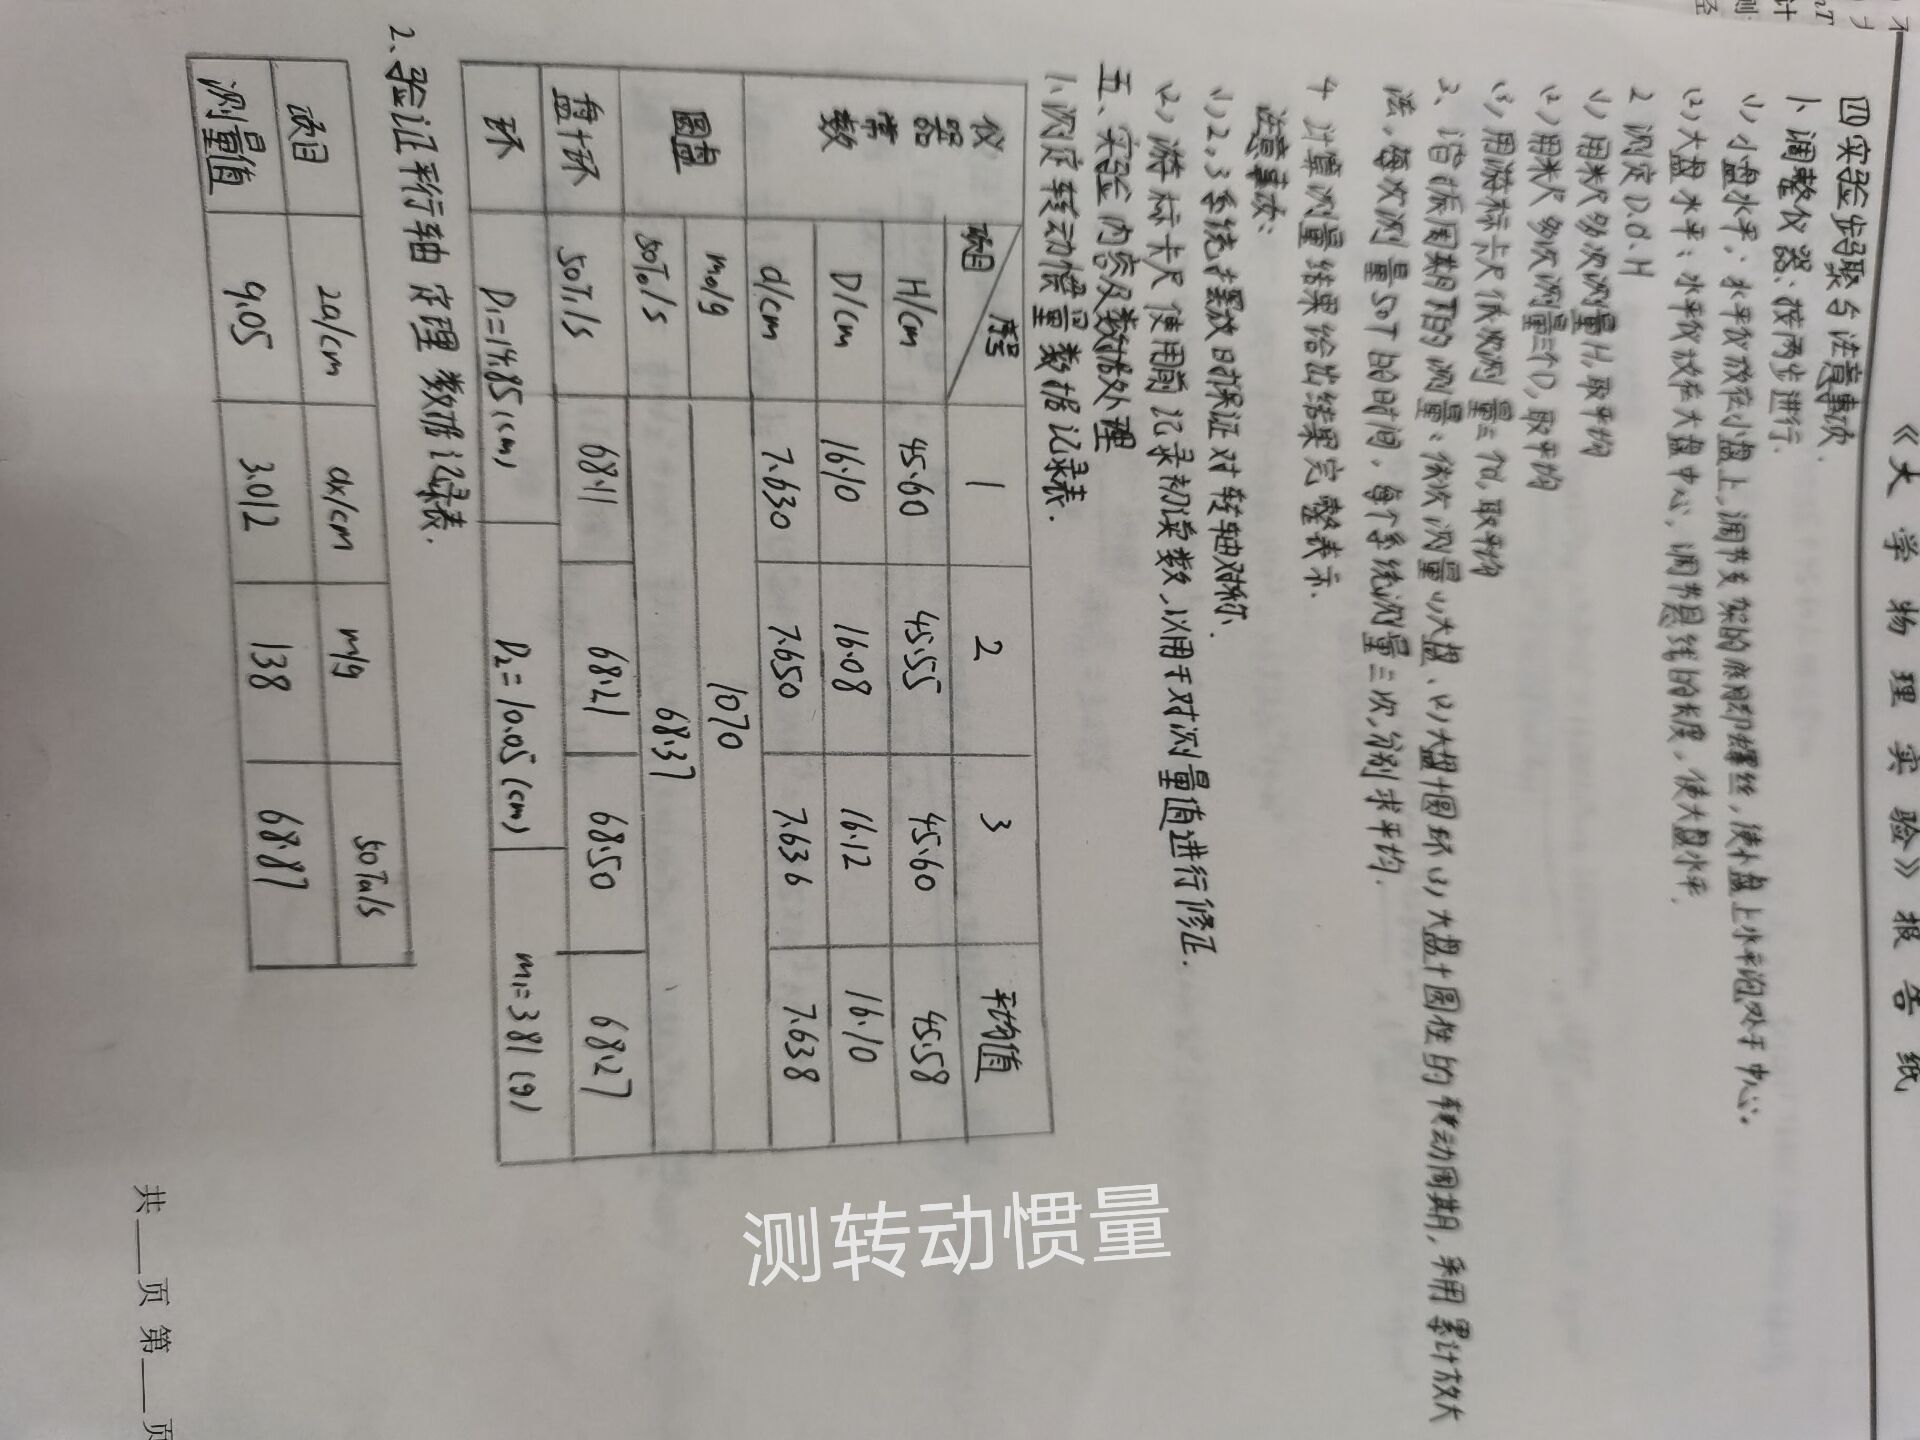 《大学物理实验》报告纸
四 实验步骤与注意事项.
1、调整仪器:按两步进行.
(1) 小盘水平:水平仪放在小盘上,调节支架的底脚螺丝,使小盘上水平泡处于中心。
(2) 大盘水平:水平仪放在大盘中心,调节悬线的长度,使大盘水平.
2 测定D.d.H
(1) 用米尺多次测量H,取平均
(2) 用米尺多次测量三个D,取平均
(3) 用游标卡尺依次测量三个d,取平均
3、谐振周期T的测量:依次测量(1)大盘、(2)大盘+圆环(3)大盘+圆柱的转动周期,采用累计放大
法,每次测量50T的时间,每个系统测量三次,分别求平均.
4 计算测量结果给出结果完整表示.
注意事项:
(1) 2,3系统摆放时保证对转轴对称.
(2) 游标卡尺使用前记录初读数,以用于对测量值进行修正.
五、实验内容及数据处理
1.测定转动惯量数据记录表.
仪器常数 项目 序号 1 2 3 平均值
H/cm 45.60 45.55 45.60 45.58
D/cm 16.10 16.08 16.12 16.10
d/cm 7.630 7.650 7.636 7.638
圆盘 m₀/g 1070
50T₀/s 68.37
盘+环 50T₁/s 68.11 68.21 68.50 68.27
环 D₁=14.85(cm) D₂=10.05(cm) m₁=381(g)
2、验证平行轴定理数据记录表.
项目 2a/cm dx/cm m/g 50Ta/s
测量值 9.05 3.012 138 68.87
测转动惯量
共___页 第___页
nT
计
测
径